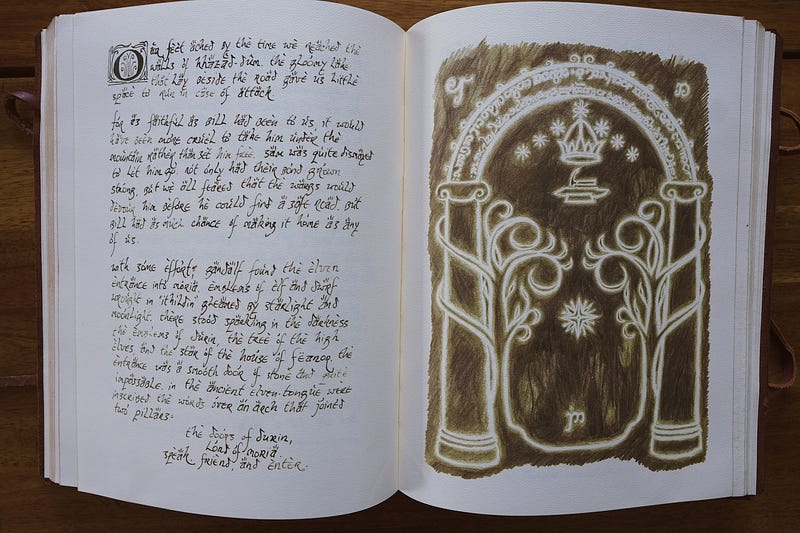 Our feet ached by the time we reached the
walls of Khazad dum. the gloomy lake
that lay beside the road gave us little
space to run in case of attack
for as faithful as Bill had been to us, it would
have been more cruel to take him under the
mountain rather than set him free. Sam was quite dismayed
to let him go, not only had their bond grown
strong, but we all feared that the wargs would
devour him before he could find a safe road. but
Bill had as much chance of making it home as any
of us.
with some effort, gandalf found the elven
entrance into moria. emblems of elf and dwarf
wrought in 'ithildin' gleamed by starlight and
moonlight. there stood sparkling in the darkness
the emblems of durin, the tree of the high
elves, and the star of the house of fëanor. the
entrance was a smooth door of stone and quite
impassable. in the ancient elven-tongue were
inscribed the words over an arch that joined
two pillars:
the doors of durin,
Lord of moria.
speak, friend, and enter.